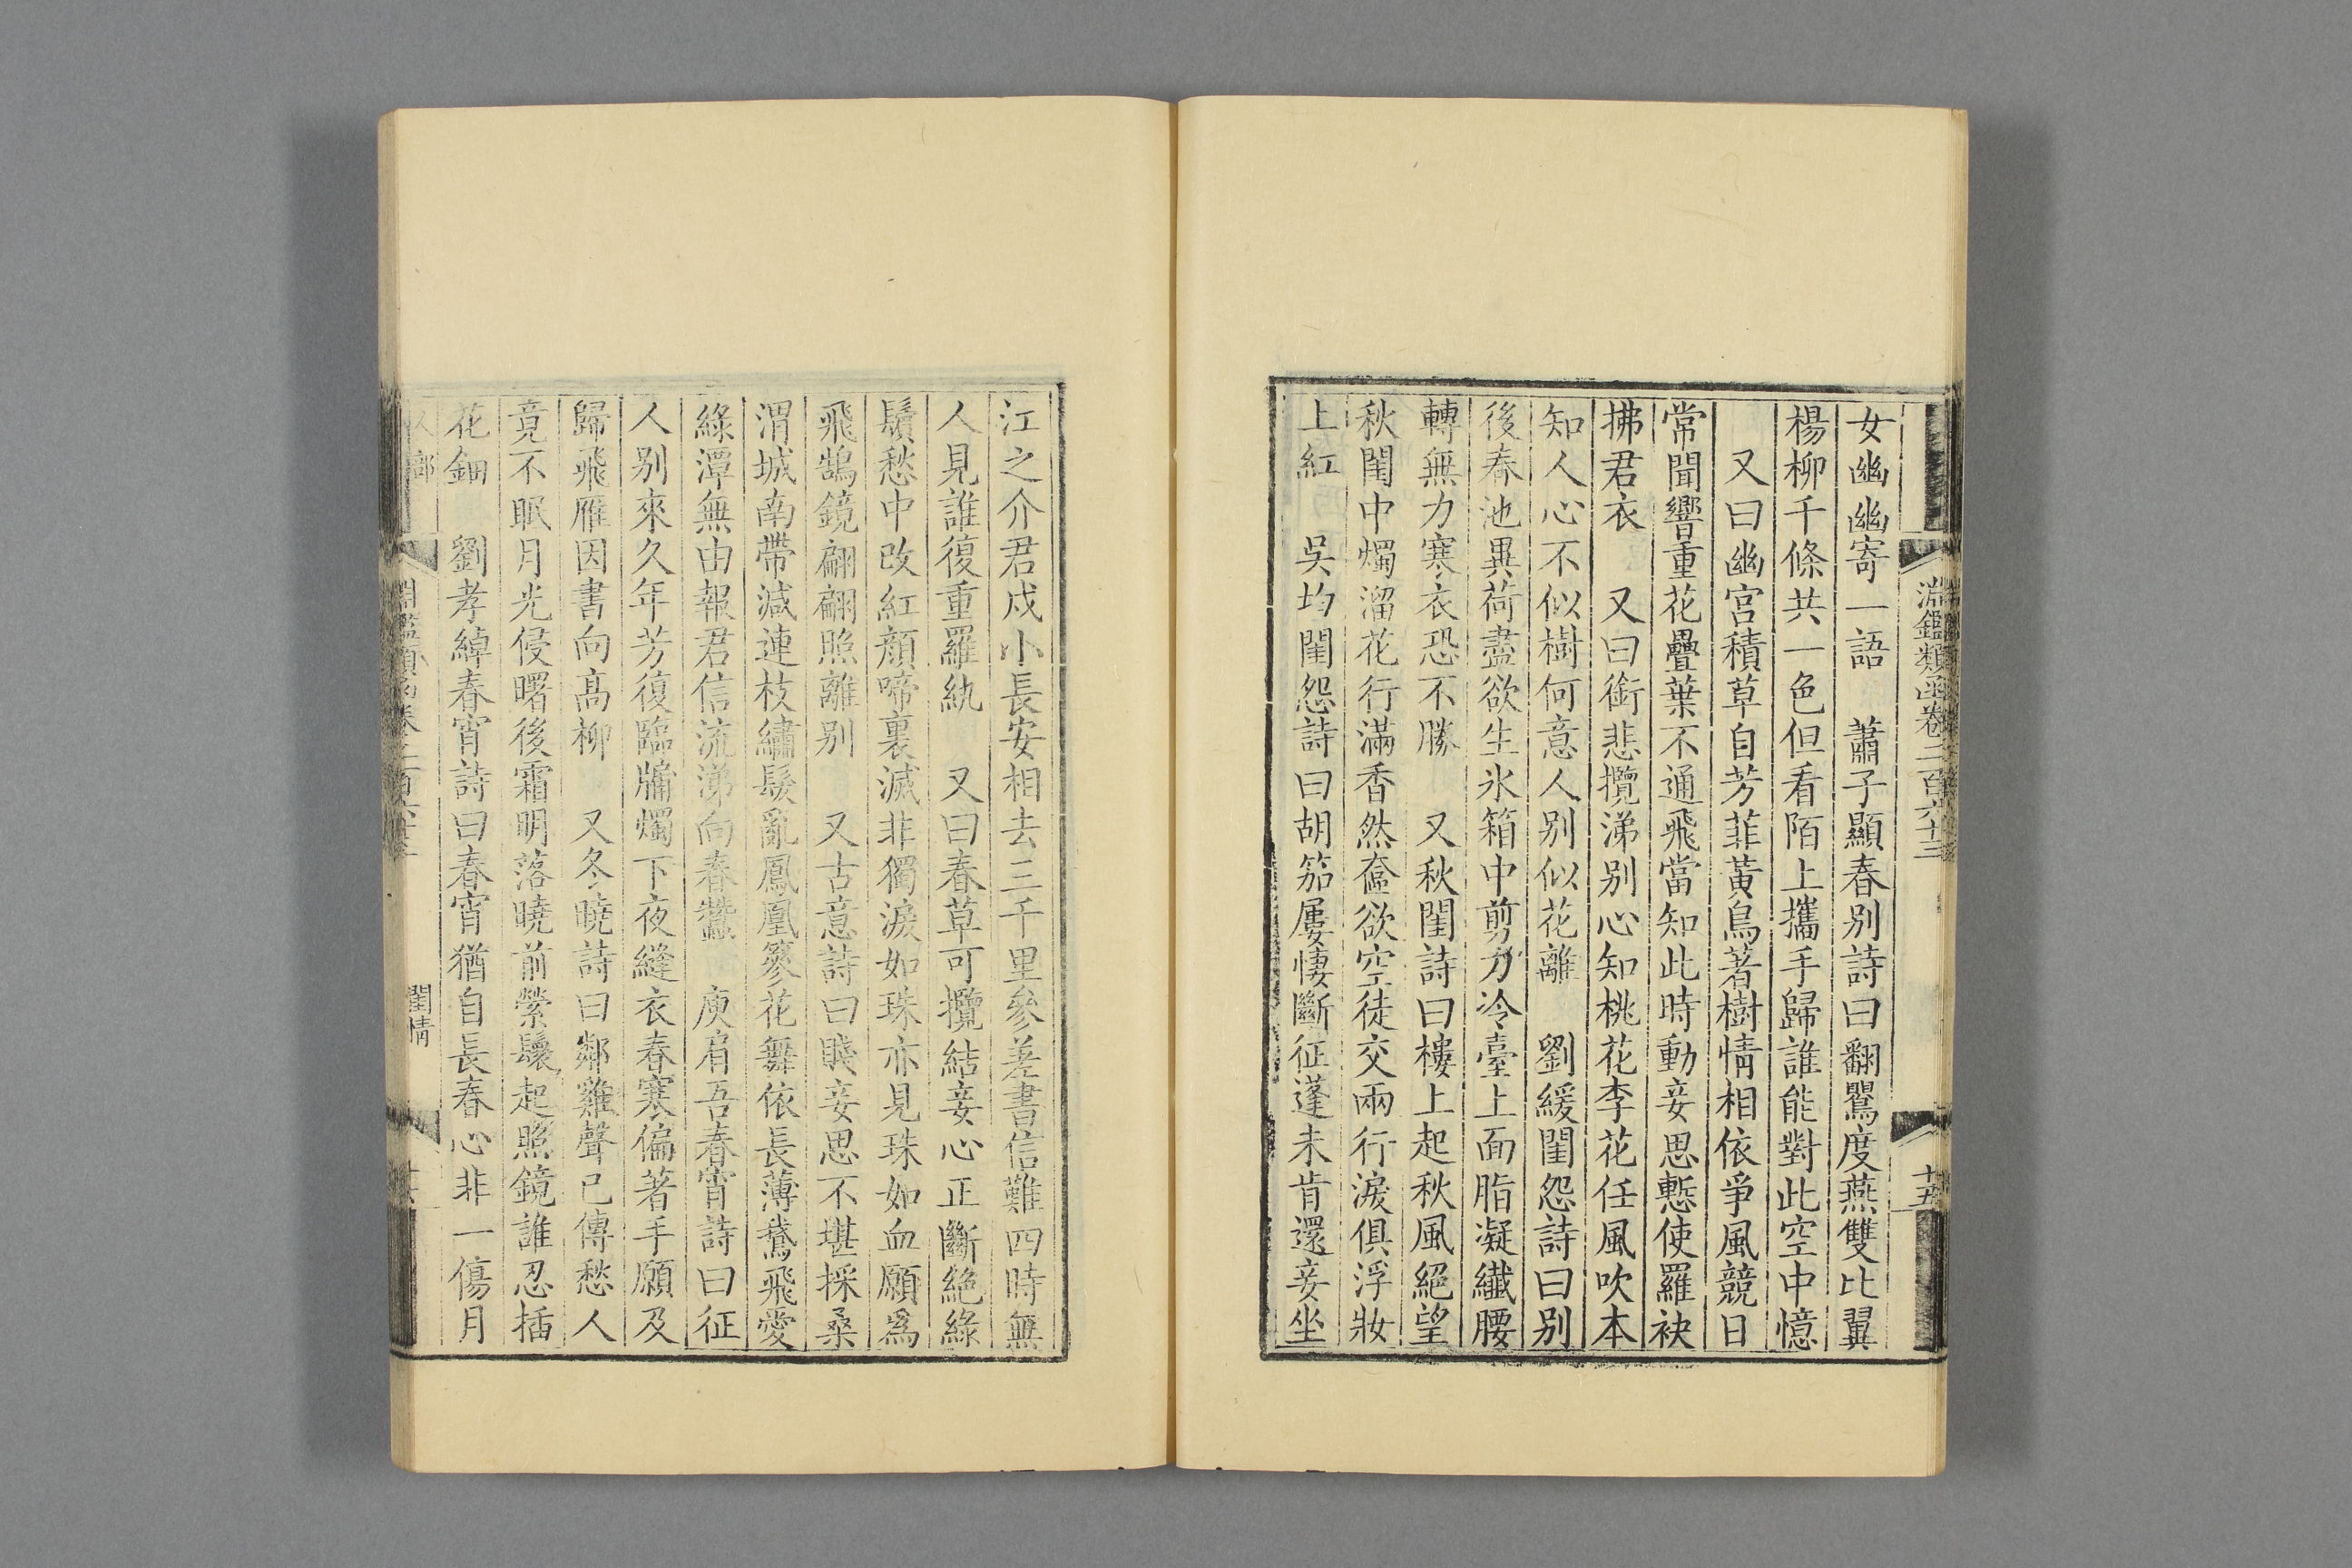 淵鑑類函卷二百六十三
十五
女幽幽寄一語　蕭子顯春别詩曰翻鸎度燕雙比翼
楊柳千條共一色但看陌上攜手歸誰能對此空中憶
又曰幽宮積草自芳菲黃鳥著樹情相依爭風競日
常聞響重花疊葉不通飛當知此時動妾思慙使羅袂
拂君衣　又曰銜悲攬涕别心知桃花李花任風吹本
知人心不似樹何意人别似花離　劉緩閨怨詩曰别
後春池異荷盡欲生氷箱中剪刀冷臺上面脂凝纎腰
轉無力寒衣恐不勝　又秋閨詩曰樓上起秋風絕望
秋閨中燭溜花行滿香然奩欲空徒交兩行淚俱浮妝
上紅　吳均閨怨詩曰胡笳屢悽斷征蓬未肯還妾坐
江之介君戍小長安相去三千里參差書信難四時無
人見誰復重羅紈　又曰春草可攬結妾心正斷絕綠
鬢愁中改紅顏啼裏滅非獨淚如珠亦見珠如血願爲
飛鵠鏡翩翩照離别　又古意詩曰賤妾思不堪採桑
渭城南帶減連枝繡髮亂鳳凰簪花舞依長薄蛾飛愛
綠潭無由報君信流涕向春蠶　庾肩吾春宵詩曰征
人别來久年芳復臨牖燭下夜縫衣春寒偏著手願及
歸飛雁因書向髙柳　又冬曉詩曰鄰雞聲已傳愁人
竟不眠月光侵曙後霜明落曉前縈鬟起照鏡誰忍插
花鈿　劉孝綽春宵詩曰春宵猶自長春心非一傷月
人部
淵鑑類函卷二百六十三
閨情